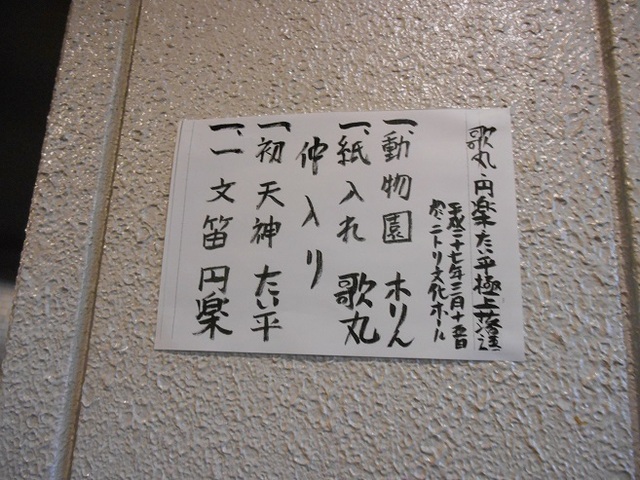 歌丸・円楽・たい平極上落語
平成二十七年三月十五日
於・ニトリ文化ホール
一、動物園 木りん
一、紙入れ 歌丸
仲入り
一、初天神 たい平
一、一文笛 円楽